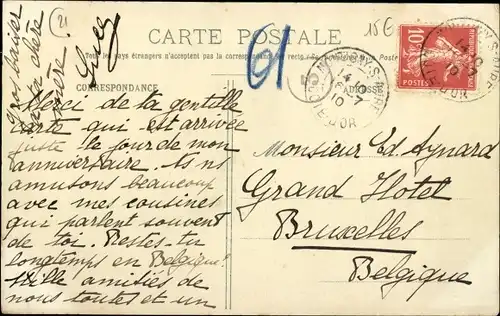 21
15E
CARTE POSTALE
Tous les pays étrangers n'acceptent pas la correspondance au recto
CORRESPONDANCE
ADRESSE
61
10
POSTES
COTE D'OR
Merci de ta gentille
carte qui est arrivée
juste le jour de mon
anniversaire. Ns ns
amusons beaucoup
avec mes cousines
qui parlent souvent
de toi. Restes-tu
longtemps en Belgique?
Mille amitiés de
nous toutes et un
gros baiser
de ta chère
Monsieur Ed. Aynard
Grand Hotel
Bruxelles
Belgique